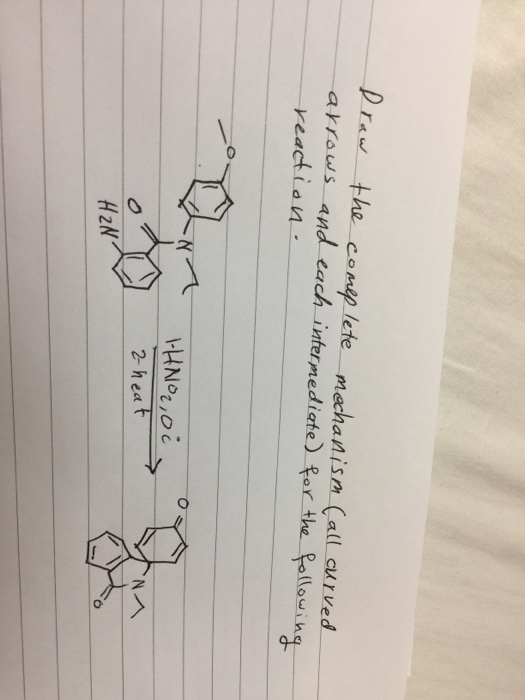 Draw the comeplete mechanism (all curved
arrows and each intermediate) for the following
reaction.
O
N
O
H2N
1-HNO2, 0°C
2-heat
O
N
O